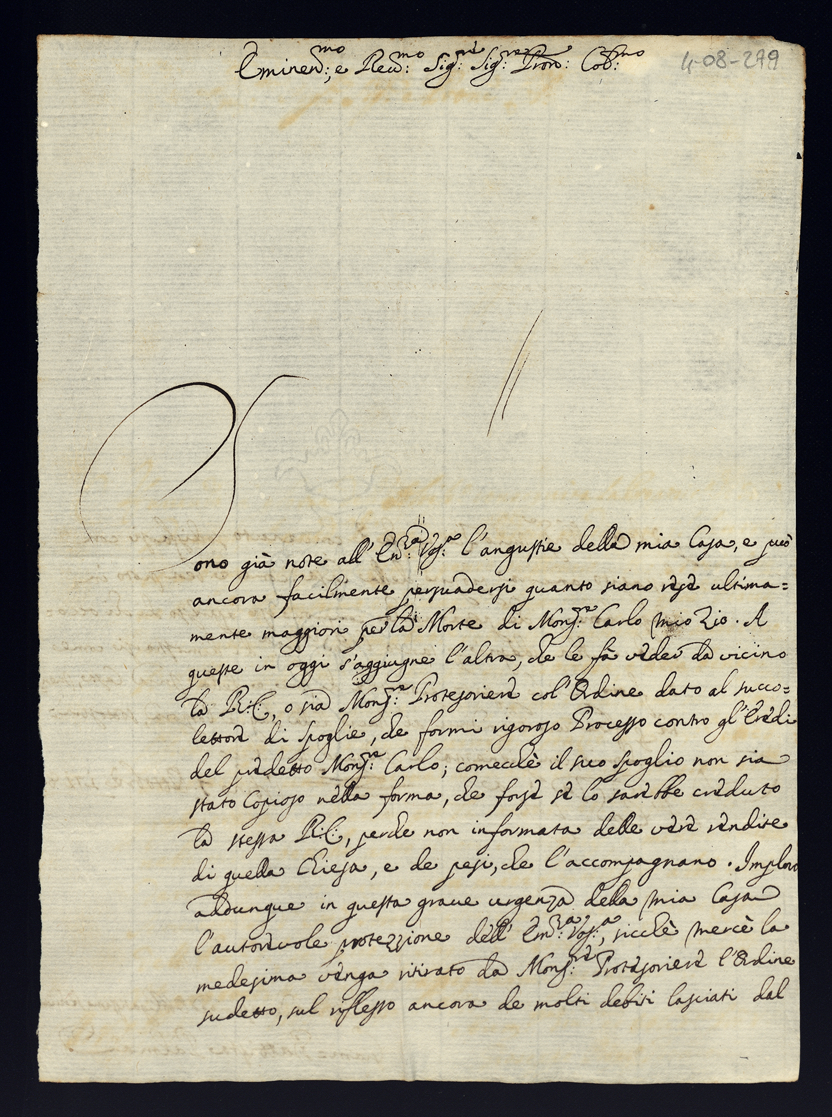 Eminen:mo; e Reu:mo Sig:re Sig:re Pron: Col:mo
4-08-299
Sono già note all' Em:za Vos:a l'angustie della mia Casa, e può
ancora facilmente persuadersi quanto siano rese ultima=
mente maggiori per la Morte di Mons:re Carlo mio Zio. A
queste in oggi s'aggiugne l'altra, che le fà veder da vicino
la R: C:, o sia Mons:re Protesoriere col'Ordine dato al succo=
lettore di spoglie, che formi rigoroso Processo contro gl'Eredi
del predetto Mons:re Carlo; comecchè il suo spoglio non sia
stato Copioso nella forma, che forse se lo sarebbe creduto
la stessa R: C:, perche non informata delle vere rendite
di quella Chiesa, e de pesi, che l'accompagnano. Imploro
addunque in questa graue urgenza della mia Casa
l'autoreuole protezzione dell' Em:za Vos:a, sicchè mercè la
medesima venga ritirato da Mons:re Protesoriere l'Ordine
sudetto, sul riflesso ancora de molti debiti lasciati dal